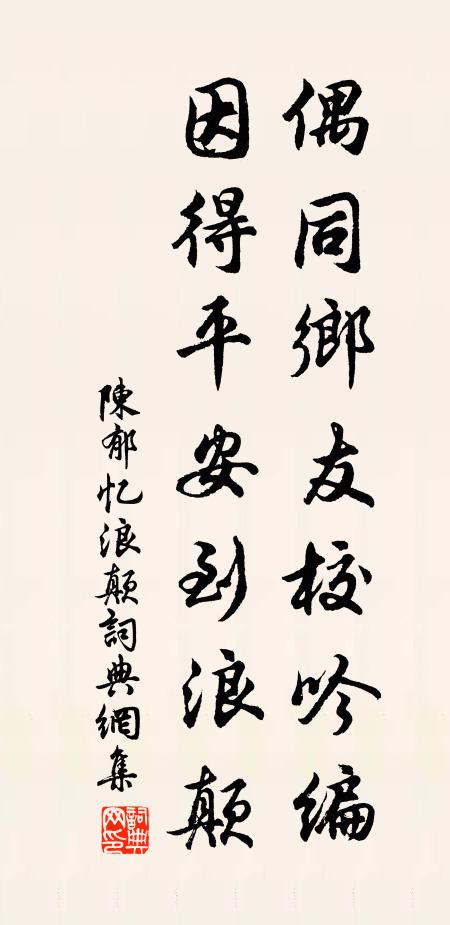 偶同鄉友校吟編
因得平安到浪顛
陳郁忆浪顛詞典網集
詞典網印